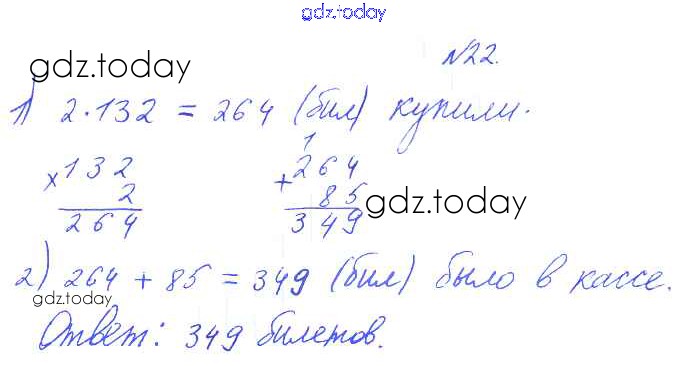 gdz.today
№22.
gdz.today
1) 2·132 = 264 (бил) купили.
1
×132 +264
2 85
264 349
gdz.today
2) 264 + 85 = 349 (бил) было в кассе.
gdz.today
Ответ: 349 билетов.